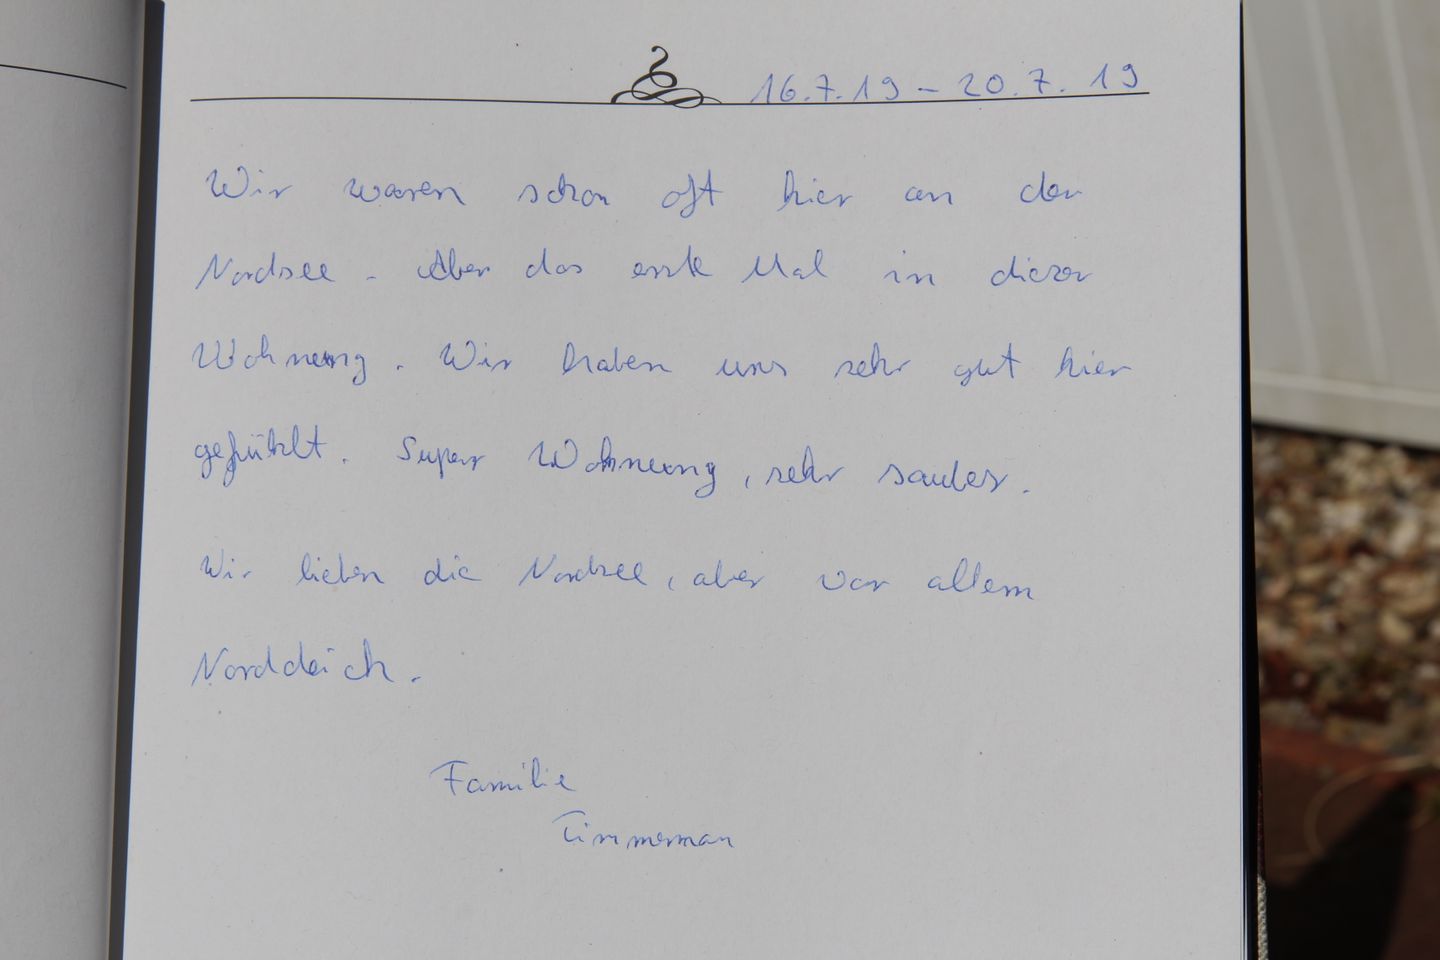 16.7.19 - 20.7.19
Wir waren schon oft hier an der
Nordsee. Aber das erste Mal in dieser
Wohnung. Wir haben uns sehr gut hier
gefühlt. Super Wohnung, sehr sauber.
Wir lieben die Nordsee, aber vor allem
Norddeich.
Familie
Timmerman